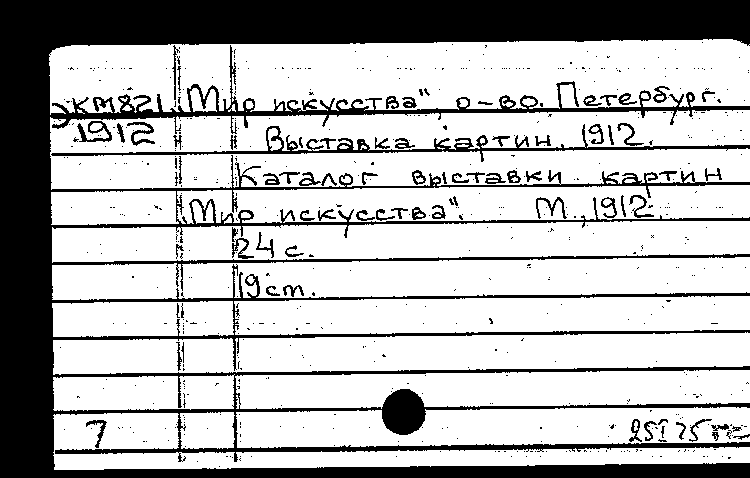 КМ821. „Мир искусства", о-во. Петербург.
1912 Выставка картин. 1912.
Каталог выставки картин
„Мир искусства". М., 1912.
24 с.
19 cm.
7